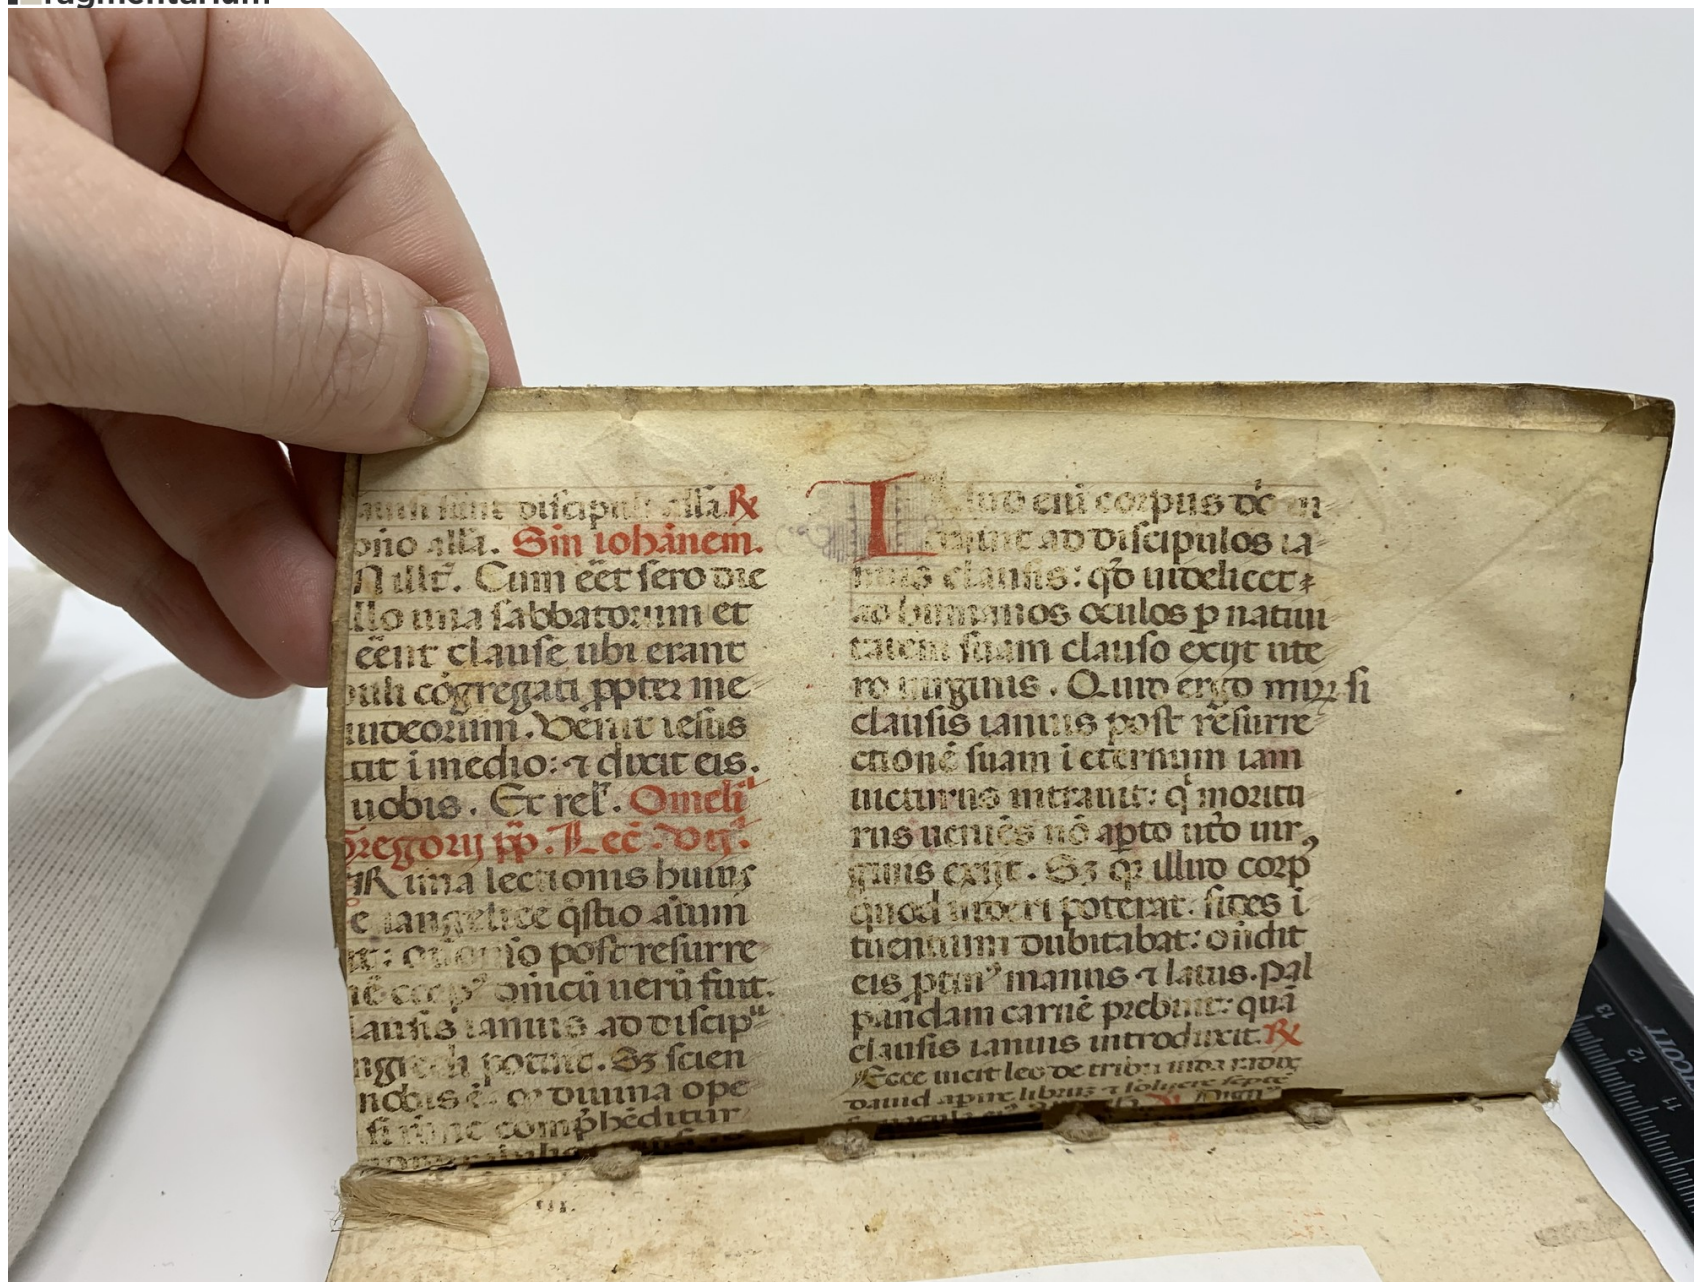 fragmentarium
sunt discipuli alla. R
ono alla. Sm iohānem.
N illr̄. Cum eēt sero die
llo una sabbatorum et
eēnt clause ubi erant
puli cōgregati ꝓpter me
uideorum. Venit iesus
tit i medio: ⁊ dixit eis.
uobis. Et rel̄. Omeli
Gregorij pp̄. Lec̄. vij.
una lectionis huius
e uangelice q̄stio aīum
post resurre
ōnicū uerū fuit.
lausis ianuis ad discip
ngredi potuit. Sꝫ scien
nobis ē. ꝙ diuina ope
si rōne comp̄hēditur
Illud eni corpus dn̄i in
trauit ad discipulos ia
nuis clausis: qđ uidelicet
ad humanos oculos ꝑ natiui
tatem suam clauso exijt ute
ro uirginis. Quid ergo miꝝ si
clausis ianuis post resurre
ctionē suam i eternum iam
uicturus intrauit: q̇ moritu
rus ueniēs nō apto utō uir
ginis exijt. Sꝫ qꝛ illud corpꝰ
quod uideri poterat. fides i
tuentium dubitabat: oñdit
eis ꝓtinꝰ manus ⁊ latus. pal
pandam carnē prebuit: quā
clausis ianuis introduxit. R
Ecce uicit leo de tribu iuda radix
dauid apire librum ⁊ soluere septē
m.
SCOTT
13
12
11